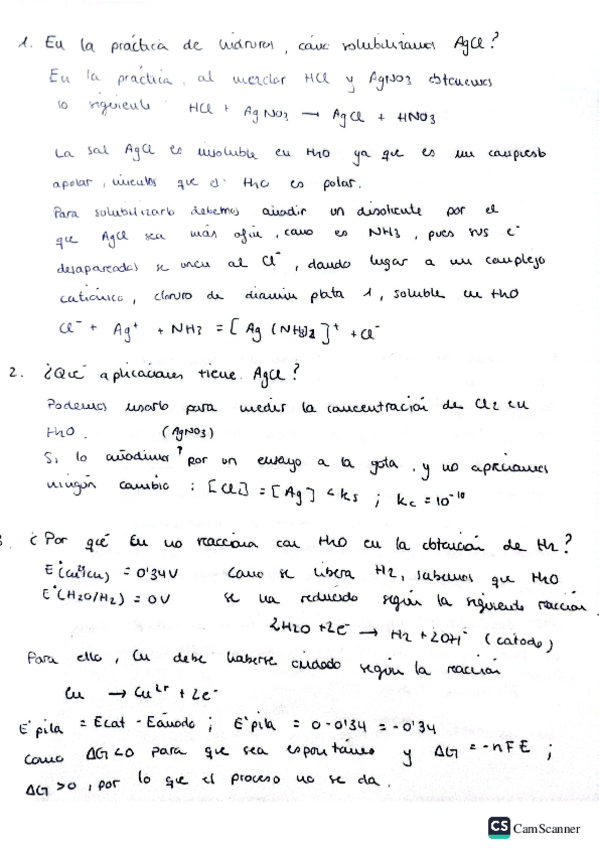 1. En la práctica de hidruros, cómo solubilizamos AgCl?
En la práctica, al mezclar HCl y AgNO3 obtenemos
lo siguiente HCl + AgNO3 → AgCl + HNO3
La sal AgCl es insoluble en H2O ya que es un compuesto
apolar, mientras que el H2O es polar.
Para solubilizarlo debemos añadir un disolvente por el
que AgCl sea más afín, como es NH3, pues sus e-
desapareados se unen al Cl-, dando lugar a un complejo
catiónico, cloruro de diamin plata 1, soluble en H2O
Cl- + Ag+ + NH3 = [Ag (NH3)2]+ + Cl-
2. ¿Qué aplicaciones tiene AgCl?
Podemos usarlo para medir la concentración de Cl2 en
H2O. (AgNO3)
Si lo añadimos ? por un ensayo a la gota, y no apreciamos
ningún cambio : [Cl2] = [Ag] < ks ; kc = 10-10
3. ¿Por qué Cu no reacciona con H2O en la obtención de H2?
E°(Cu2+/Cu) = 0'34V Como se libera H2, sabemos que H2O
E°(H2O/H2) = 0V se ha reducido según la siguiente reacción
2H2O + 2e- → H2 + 2OH- (cátodo)
Para ello, Cu debe haberse oxidado según la reacción
Cu → Cu2+ + 2e-
E°pila = Ecat - Eánodo ; E°pila = 0 - 0'34 = -0'34
como ΔG<0 para que sea espontáneo y ΔG = -nFE ;
ΔG > 0, por lo que el proceso no se da.
CS CamScanner